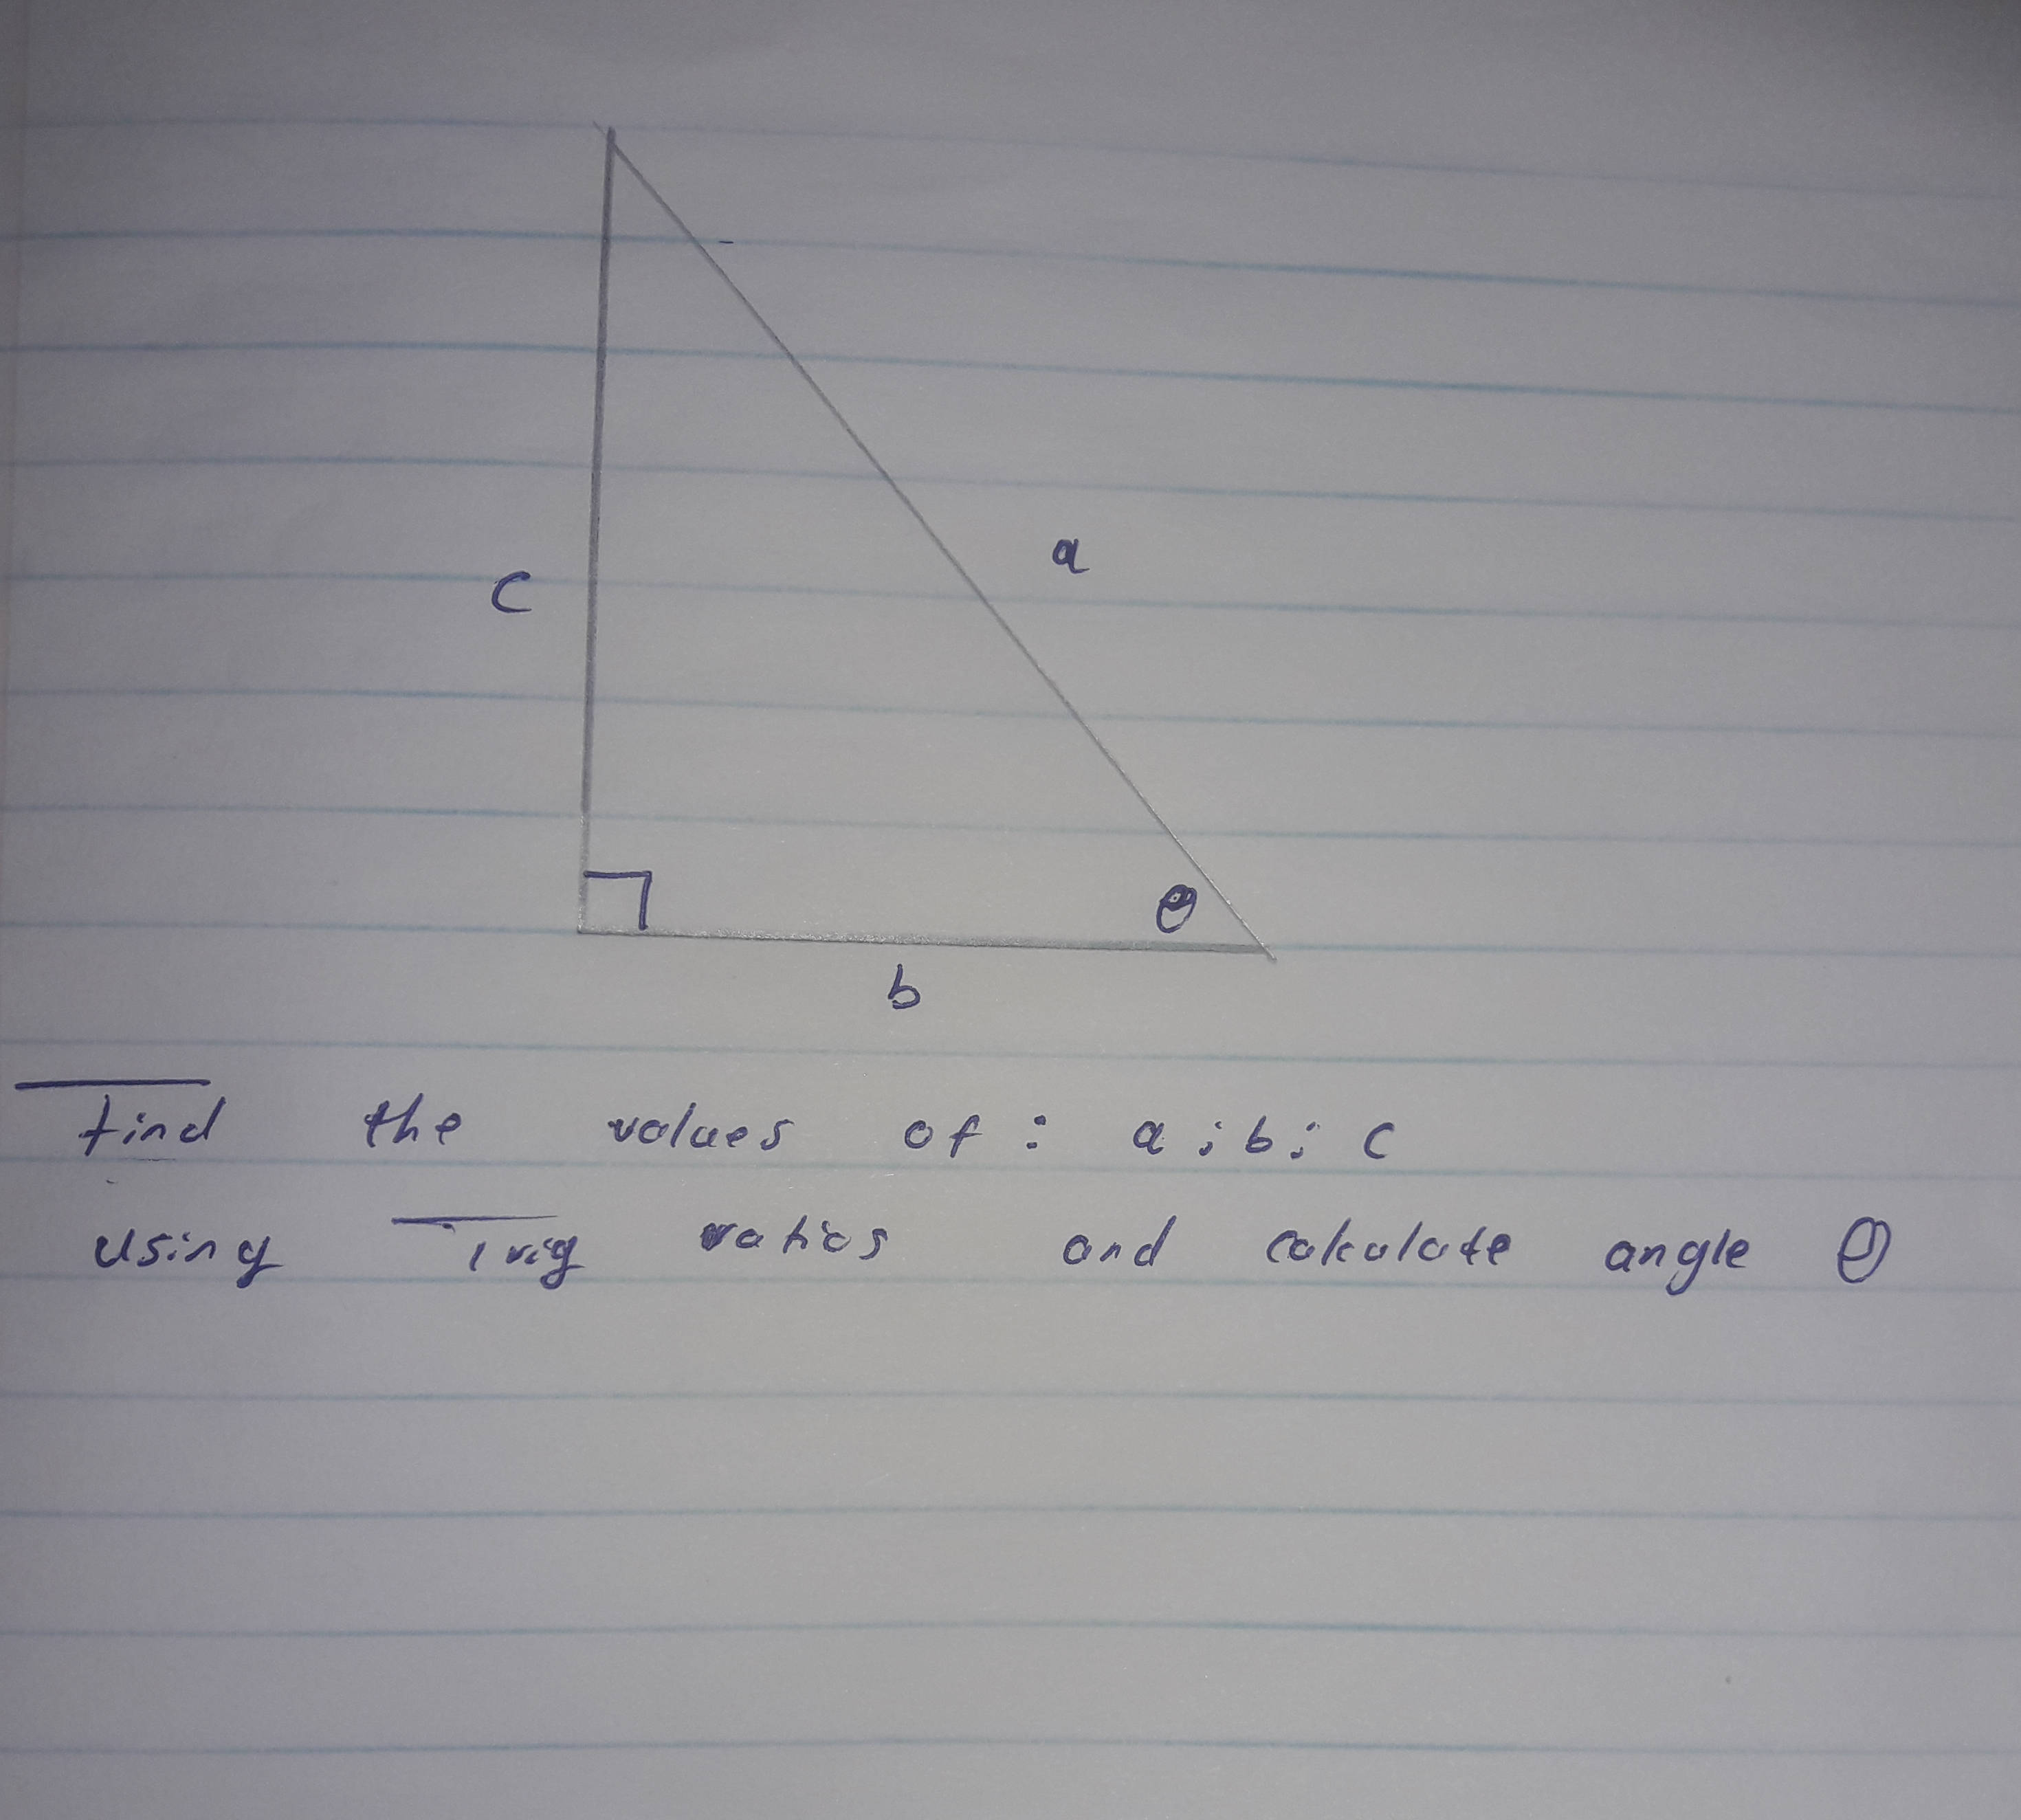 c
a
θ
b
Find the values of : a ; b ; c
using Trig ratios and calculate angle θ